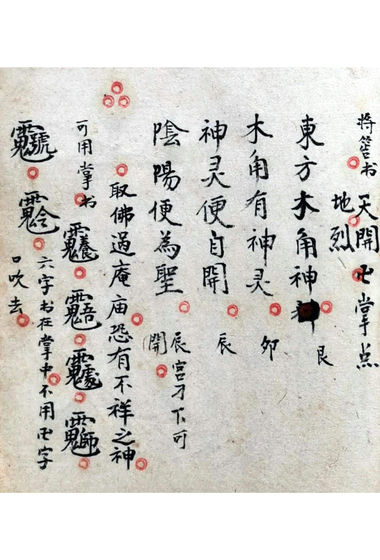 將筶书
天開卍掌点
地烈
東方木角神
艮
木角有神灵
卯
神灵便自開
辰
陰陽便為聖
辰宫刁下可
開
取佛過庵庙恐有不祥之神
可用掌书
六字书在掌中不用卍字
口吹去